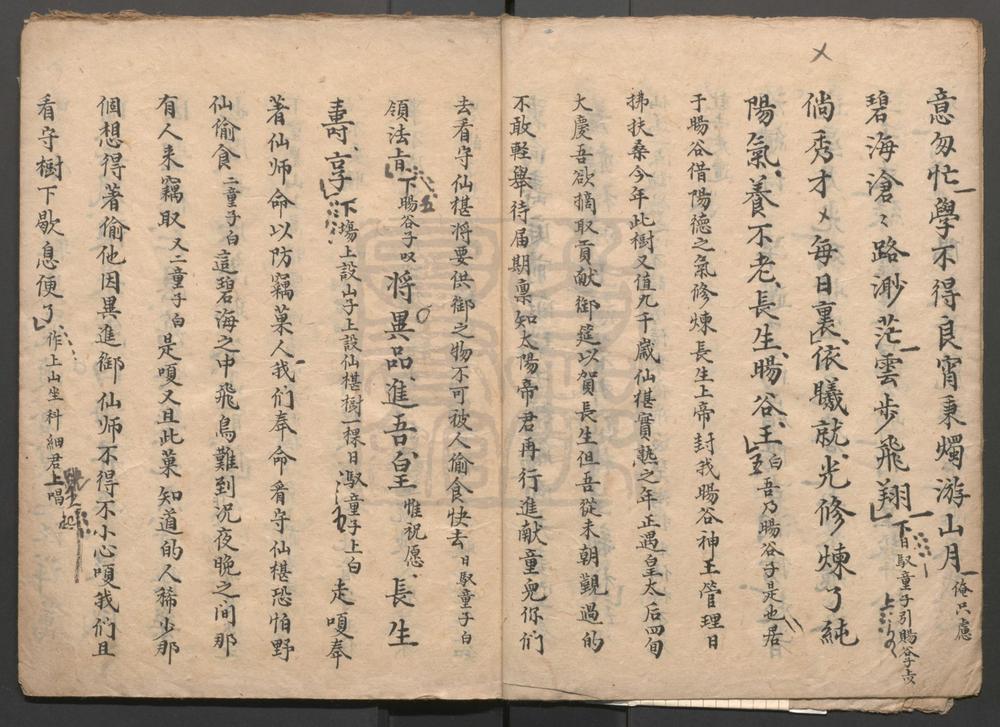 意匆忙學不得良宵秉燭游山月俺只慮
碧海滄〻路渺茫雲步飛翔下日馭童子引暘谷子上
倘秀才〤每日裏依曦就光修煉了純
陽氣養不老長生暘谷王白吾乃暘谷子是也居
于暘谷借陽德之氣修煉長生上帝封我暘谷神王管理日
拂扶桑今年此樹又值九千歲仙椹實熟之年正遇皇太后四旬
大慶吾欲摘取貢献御筵以賀長生但吾從未朝覲過的
不敢輕舉待届期禀知太陽帝君再行進献童兒你們
去看守仙椹將要供御之物不可被人偷食快去日馭童子白
領法旨下暘谷子唱將異品進吾皇惟祝愿長生
壽享下塲上設山子上設仙椹樹一棵日馭童子上白走嗄奉
著仙師命以防竊菓人我们奉命看守仙椹恐怕野
仙偷食二童子白這碧海之中飛鳥難到况夜晚之间那
有人来竊取又二童子白是嗄又且此菓知道的人稀少那
個想得著偷他因異進御仙師不得不小心嗄我们且
看守樹下歇息便了作上山坐科細君上唱